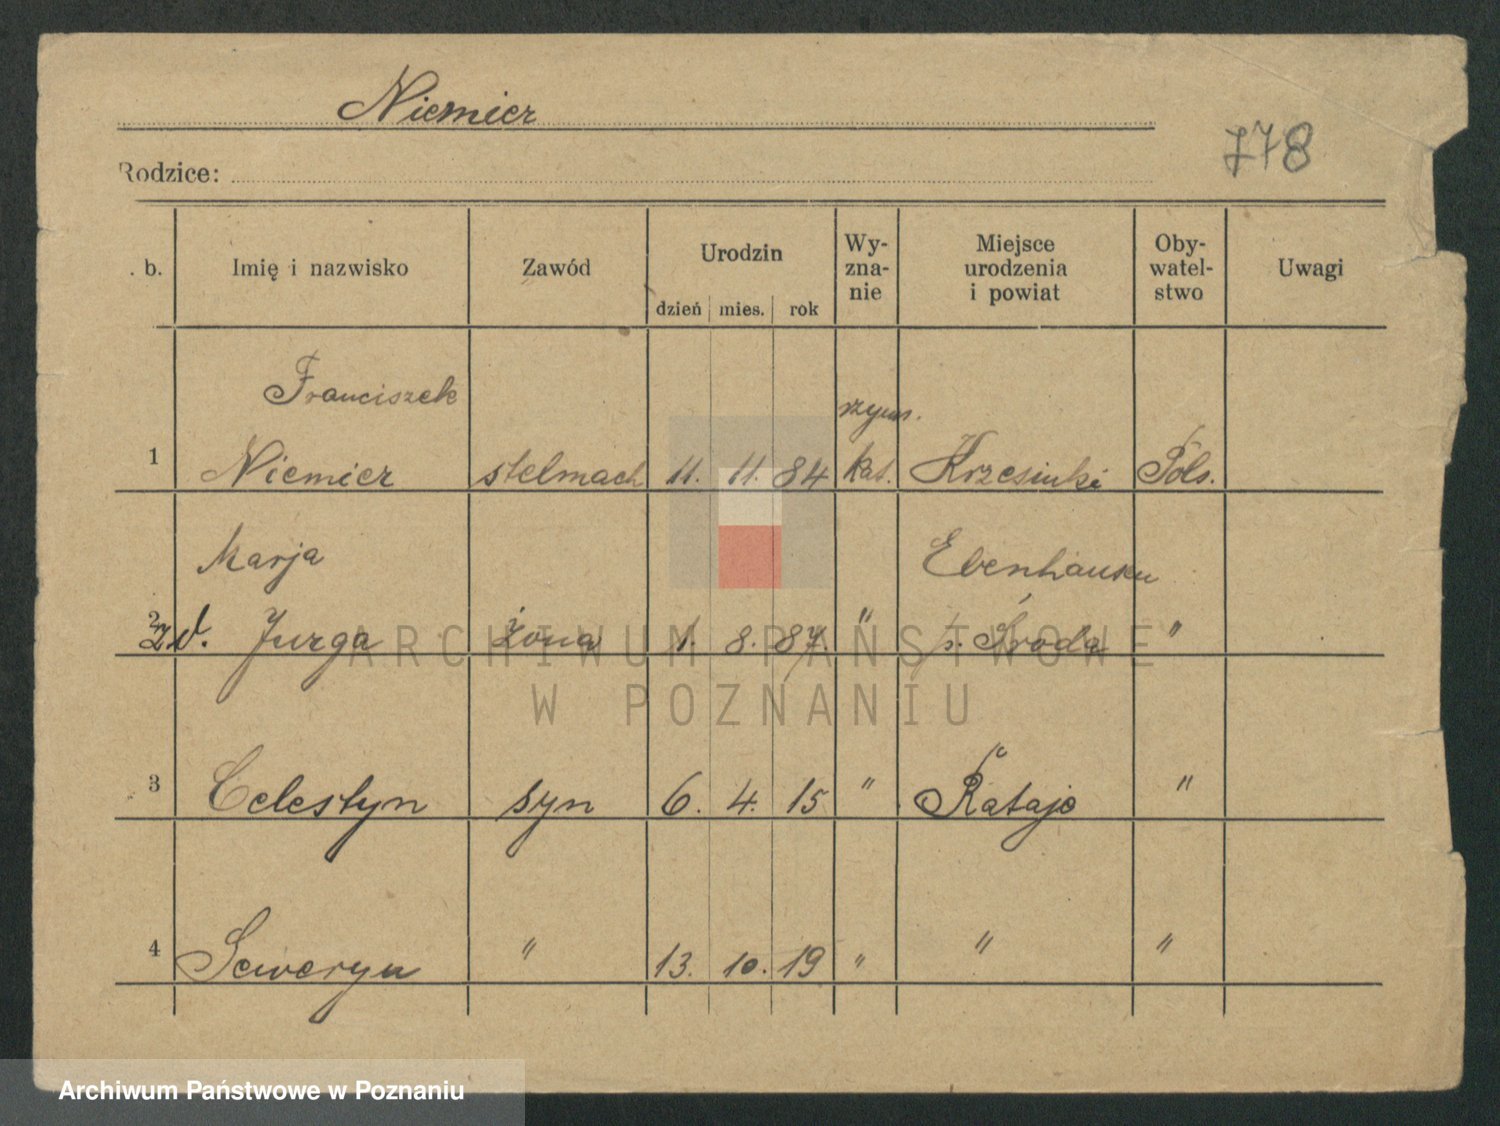 Niemier
778
Rodzice:
. b. Imię i nazwisko Zawód Urodzin dzień mies. rok Wy-zna-nie Miejsce urodzenia i powiat Oby-watel-stwo Uwagi
Franciszek rzym.
1 Niemier stelmach 11. 11. 84 kat. Krzesinki Pols.
Marja Ebenhausen
2 zd. Jurga żona 1. 8. 87. " p. Środa "
3 Celestyn syn 6. 4. 15 " Rataje "
4 Seweryn " 13. 10. 19 " " "
ARCHIWUM PAŃSTWOWE
W POZNANIU
Archiwum Państwowe w Poznaniu